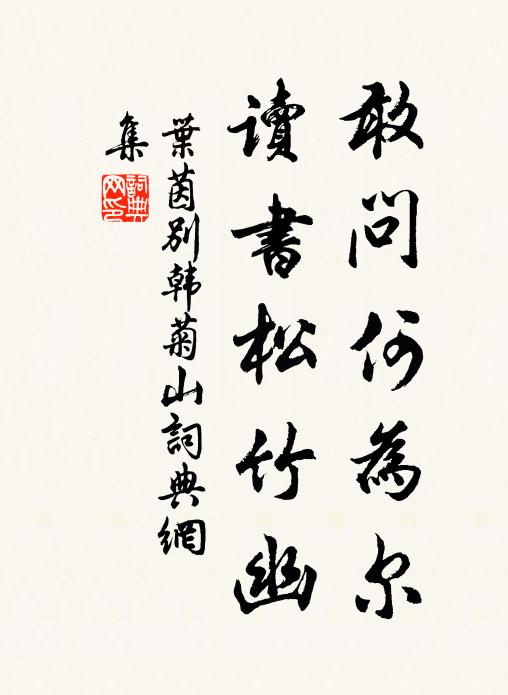 敢問何為尔
讀書松竹幽
葉茵别韩菊山詞典網
集
詞典
网印